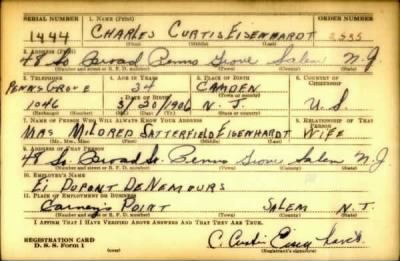 SERIAL NUMBER 1. NAME (Print) ORDER NUMBER
1444 CHARLES CURTIS EISENHARDT 2535
2. ADDRESS (Print)
48 So Broad Penns Grove Salem N.J.
(Number and street or R. F. D. number) (Town) (County) (State)
3. TELEPHONE 4. AGE IN YEARS 5. PLACE OF BIRTH 6. COUNTRY OF CITIZENSHIP
PENNS GROVE 34 CAMDEN
1046 3/20/1906 N.J. U.S.
(Exchange) (Number) (Mo.) (Day) (Yr.) (State or country)
7. NAME OF PERSON WHO WILL ALWAYS KNOW YOUR ADDRESS 8. RELATIONSHIP OF THAT PERSON
MRS MILDRED SATTERFIELD EISENHARDT WIFE
9. ADDRESS OF THAT PERSON
48 So. Broad St. Penns Grove Salem N.J.
(Number and street or R. F. D. number) (Town) (County) (State)
10. EMPLOYER'S NAME
EI DUPONT DENEMOURS
11. PLACE OF EMPLOYMENT OR BUSINESS
Carneys POINT SALEM N.J.
(Number and street or R. F. D. number) (Town) (County) (State)
I AFFIRM THAT I HAVE VERIFIED ABOVE ANSWERS AND THAT THEY ARE TRUE.
REGISTRATION CARD
D. S. S. Form 1
C. Curtis Eisenhardt
(Registrant's signature)